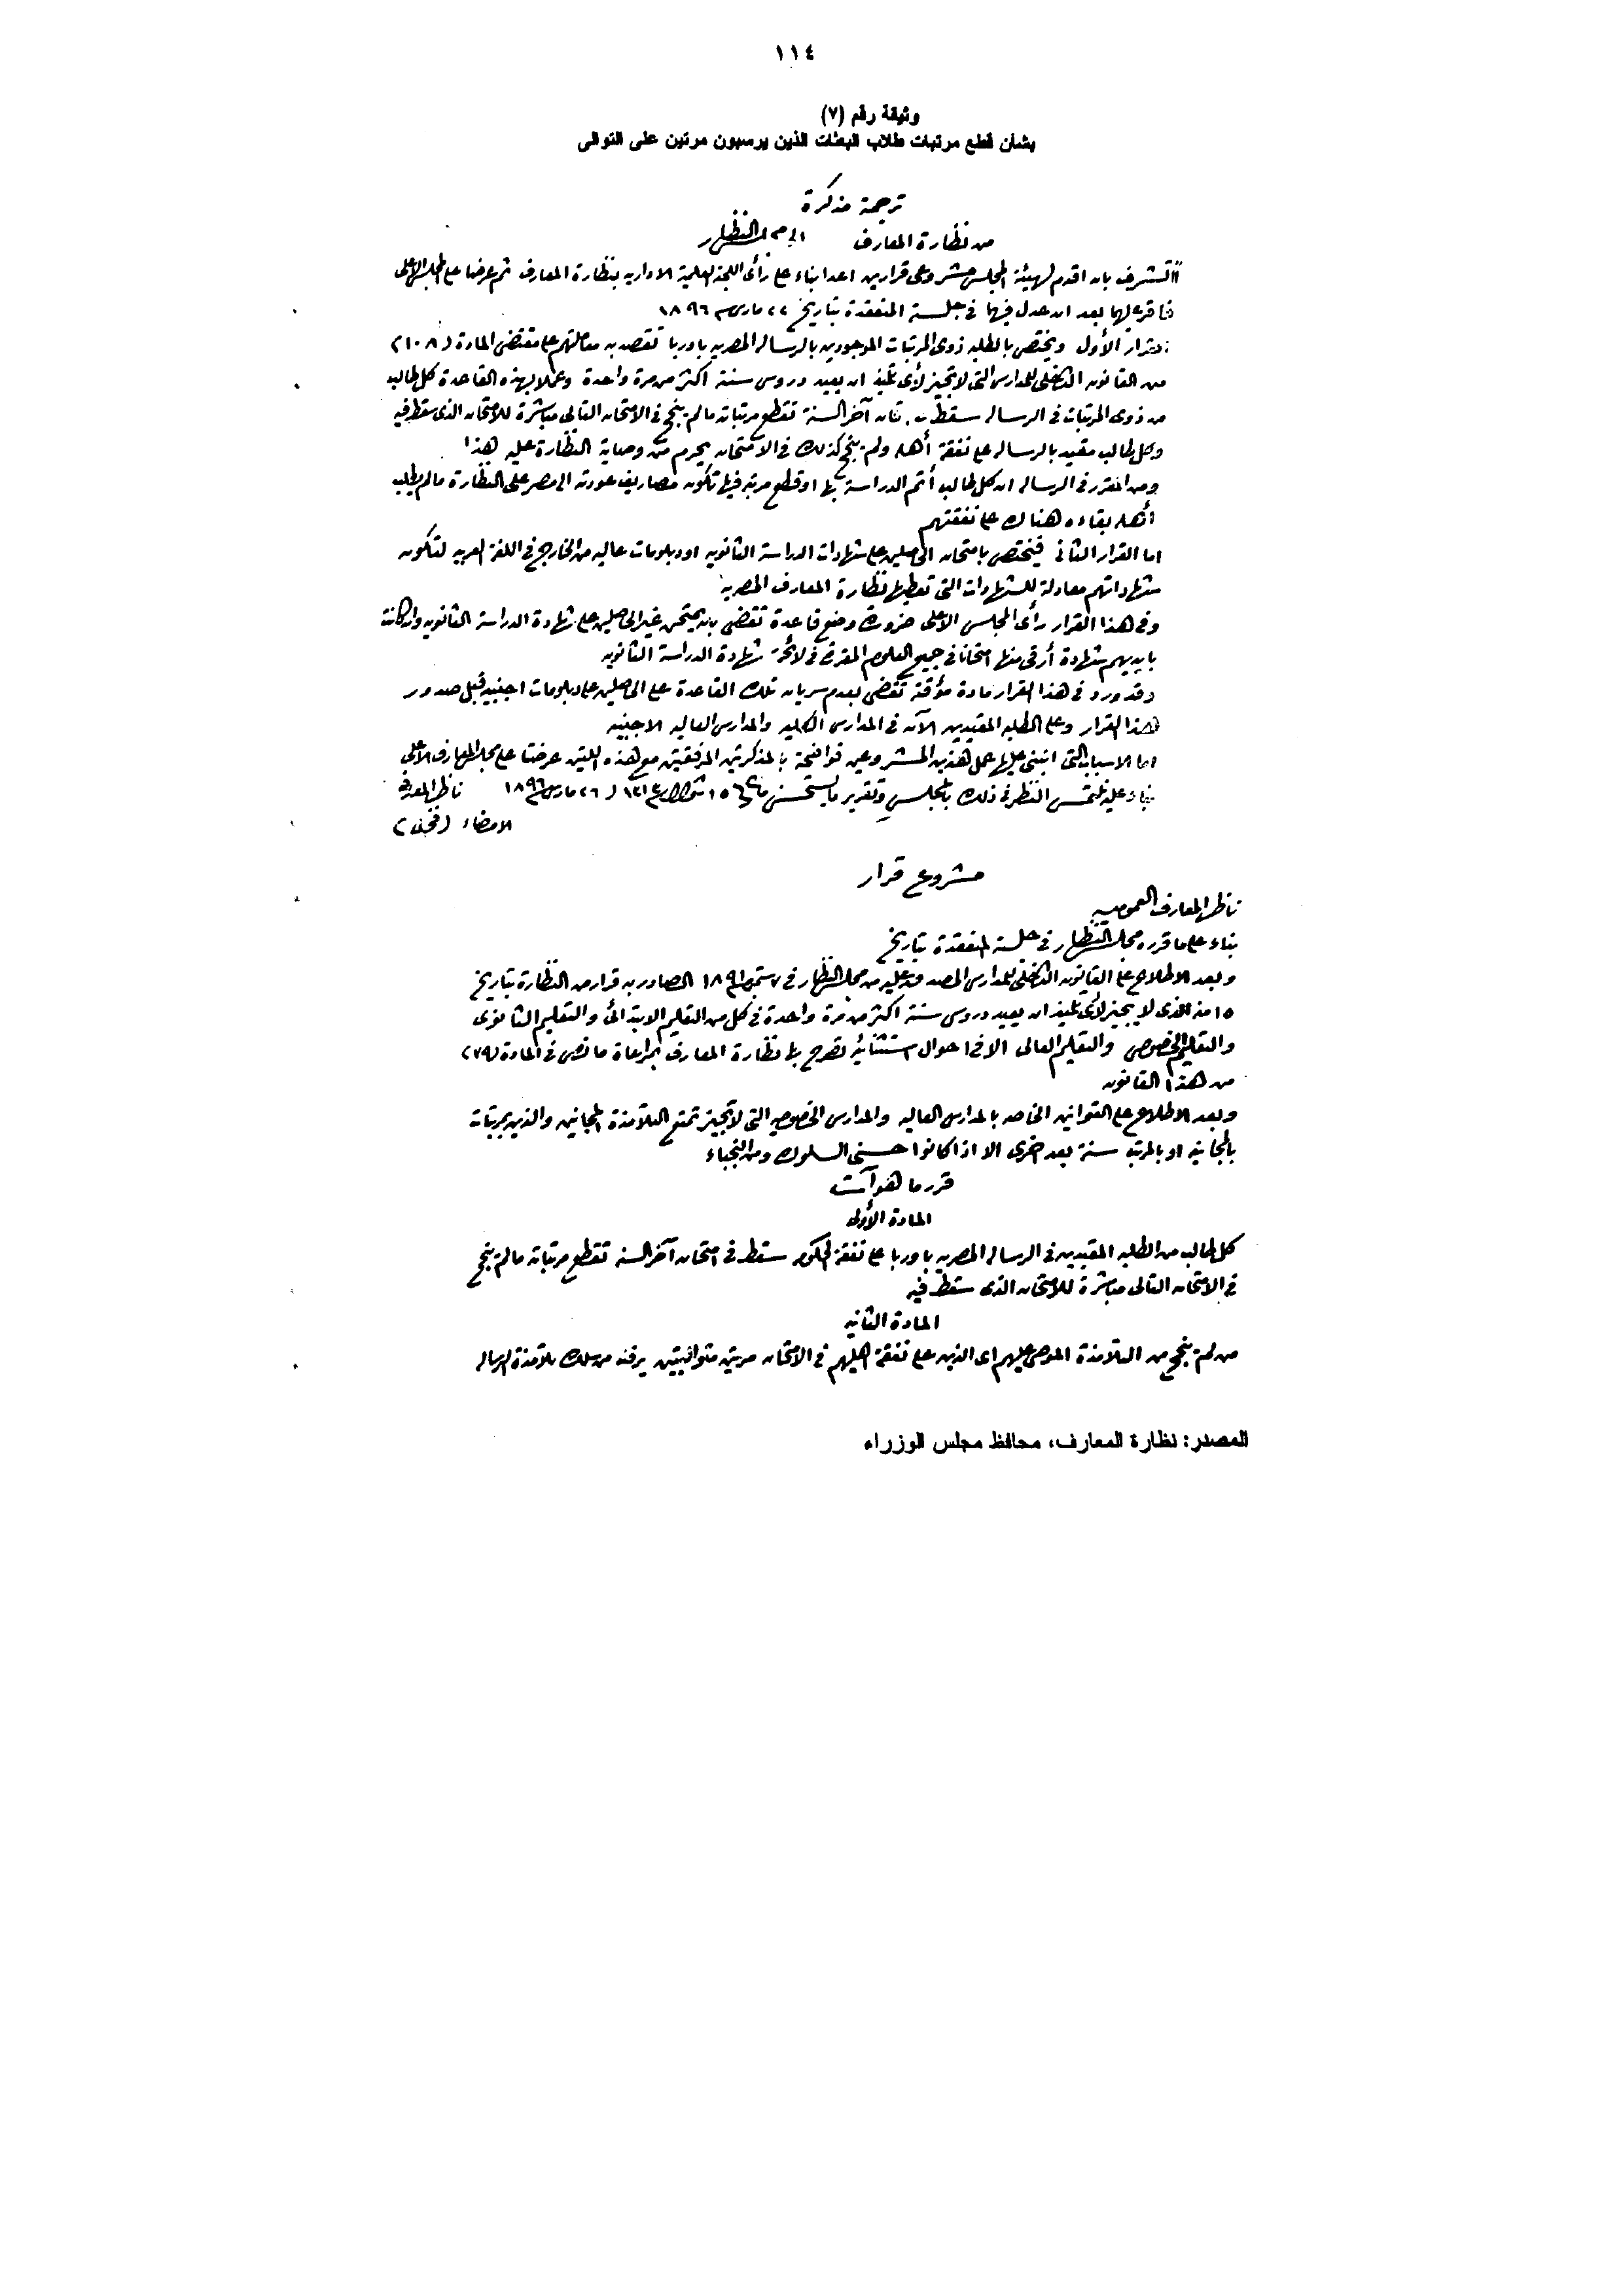 ١١٤
وثيقة رقم (٧)
بشأن قطع مرتبات طلاب البعثات الذين يرسبون مرتين على التوالى
ترجمة مذكرة
من نظارة المعارف الى مجلس النظار
أتشرف بان اقدم لهيئة المجلس مشروعى قرارين اعدا بناء على رأى اللجنة العلمية الادارية بنظارة المعارف ثم عرضا على المجلس الاعلى
فأقر عليهما بعد ان عدل فيهما فى جلسته المنعقدة بتاريخ ٢٢ مارس سنة ١٨٩٦
القرار الأول ويختص بالطلبه ذوى المرتبات الموجودين بالرساله المصريه باوربا تقصد به معاملتهم على مقتضى المادة (١٠٨)
من القانون الداخلى للمدارس التى لا تجيز لأى تلميذ ان يعيد دروس سنة اكثر من مرة واحدة وعملا بهذه القاعدة كل طالب
من ذوى المرتبات فى الرساله سقط آخر السنة تقطع مرتباته مالم ينجح فى الامتحان التالى مباشرة للامتحان الذى سقط فيه
وكل طالب مقيد بالرساله على نفقة أهله ولم ينجح كذلك فى الامتحان يحرم من وصاية النظارة عليه هذا
ومن المقرر فى الرساله ان كل طالب أتم الدراسة بها او قطع مرتبه فيها تكون مصاريف عودته الى مصر على النظارة مالم يطلب
أهله بقاءه هناك على نفقتهم
اما القرار الثانى فيختص بامتحان الحاصلين على شهادات الدراسة الثانويه او دبلومات عاليه من الخارج فى اللغة العربيه لتكون
شهاداتهم معادلة للشهادات التى تعطيها نظارة المعارف المصريه
وفى هذا القرار رأى المجلس الاعلى ضرورة وضع قاعدة تقضى بان يمتحن غير الحاصلين على شهادة الدراسة الثانويه وان كانت
بايديهم شهادة أرقى منها امتحانا فى جميع العلوم المقررة فى لائحة شهادة الدراسة الثانويه
وقد ورد فى هذا القرار مادة مؤقتة تقضى بعدم سريان تلك القاعدة على الحاصلين على دبلومات اجنبيه قبل صدور
هذا القرار وعلى الطلبه المقيدين الآن فى المدارس الكليه والمدارس العاليه الاجنبيه
اما الاسباب التى انبنى عليها عمل هذين المشروعين فواضحة بالمذكرتين المرفقتين مع هذه اللتين عرضتا على مجلس المعارف الاعلى
بناء عليه نلتمس النظر فى ذلك بالمجلس وتقرير ما يستحسن ١٥ شوال سنة ١٣١٣ (٢٦ مارس سنة ١٨٩٦ ناظر المعارف
الامضاء (فخرى)
مشروع قرار
ناظر المعارف العموميه
بناء على ما قرره مجلس النظار فى جلسته المنعقدة بتاريخ
وبعد الاطلاع على القانون الداخلى للمدارس المصدق عليه من مجلس النظار فى ٧ سبتمبر سنة ١٨٩١ الصادر به قرار من النظارة بتاريخ
١٥ منه الذى لا يجيز لأى تلميذ ان يعيد دروس سنة اكثر من مرة واحدة فى كل من التعليم الابتدائى والتعليم الثانوى
والتعليم الخصوصى والتعليم العالى الا فى احوال استثنائيه تصرح بها نظارة المعارف بمراعاة ما نص فى المادة (٧٩)
من هذا القانون
وبعد الاطلاع على القوانين الخاصه بالمدارس العاليه والمدارس الخصوصيه التى لا تجيز تمتع التلامذة المجانين والذين بمرتبات
بالمجانيه او بالمرتب سنة بعد اخرى الا اذا كانوا حسنى السلوك ومن النجباء
قرر ما هو آت
المادة الأولى
كل طالب من الطلبه المقيدين فى الرساله المصريه باوربا على نفقة الحكومه سقط فى امتحان آخر السنه تقطع مرتباته مالم ينجح
فى الامتحان التالى مباشرة للامتحان الذى سقط فيه
المادة الثانيه
من لم ينجح من التلامذة الموصى عليهم اى الذين على نفقة اهليهم فى الامتحان مرتين متواليتين يرفت من سلك تلامذة الرساله
المصدر: نظارة المعارف، محافظ مجلس الوزراء